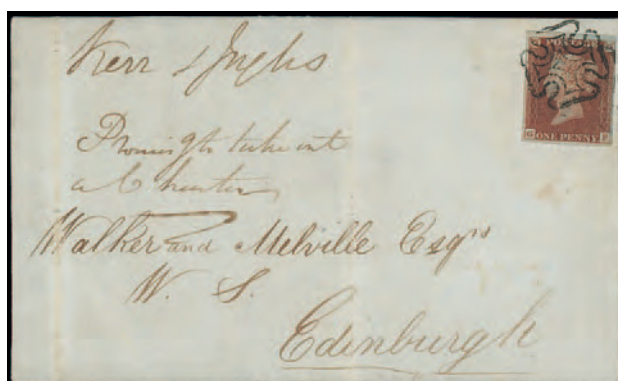 Kerr & Inglis
Promising to take out
a Charter
Walker and Melville Esqrs
W. S.
Edinburgh
POSTAGE
ONE PENNY